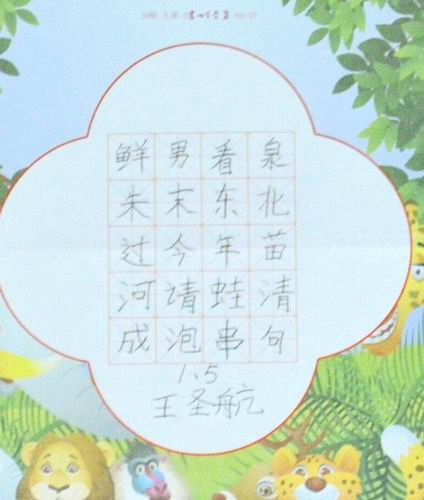 鲜男看泉
朱末东北
过今年苗
河请蛙清
成泡串句
1、5
王圣航